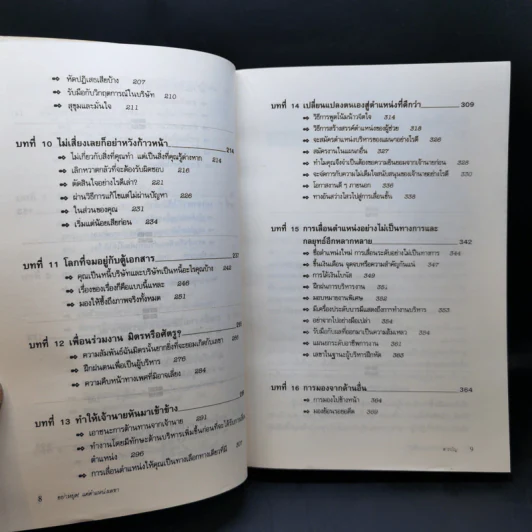 ⇨ หัดปฏิเสธเสียบ้าง 207
⇨ รับมือกับวิกฤตการณ์ในบริษัท 210
⇨ สุขุมและมั่นใจ 211
บทที่ 10 ไม่เสี่ยงเลยก็อย่าหวังก้าวหน้า 214
⇨ ไม่เกี่ยวกับสิ่งที่คุณทำ แต่เป็นสิ่งที่คุณรู้ต่างหาก 214
⇨ เลิกหวาดกลัวที่จะต้องรับผิดชอบ 216
⇨ ตัดสินใจอย่างไรดีเล่า? 221
⇨ ผ่านวิธีการแก้ไขแต่ไม่ผ่านปัญหา 226
⇨ ในส่วนของคุณ 231
⇨ เริ่มแต่น้อยเสียก่อน 234
บทที่ 11 โลกที่จมอยู่กับตู้เอกสาร
⇨ คุณเป็นหนี้บริษัทและบริษัทเป็นหนี้อะไรคุณบ้าง 242
⇨ เรื่องของเรื่องก็คือแบบนี้แหละ 246
⇨ มองให้ซึ้งถึงภาพจริงทั้งหมด 247
บทที่ 12 เพื่อนร่วมงาน มิตรหรือศัตรู?
⇨ ความสัมพันธ์ฉันมิตรนั้นยากยิ่งที่จะยอมเกิดกับเลขา
⇨ ฝึกฝนตนเพื่อเป็นผู้บริหาร 276
⇨ ความคืบหน้าทางเพศที่มิอาจเลี่ยง 284
บทที่ 13 ทำให้เจ้านายหันมาเข้าข้าง
⇨ เอาชนะการต้านทานจากเจ้านาย 291
⇨ ทำงานโดยมีทักษะด้านบริหารเพิ่มขึ้นก่อนที่จะได้รับการเลื่อน
ตำแหน่ง 296
⇨ การเลื่อนตำแหน่งให้คุณเป็นทางเลือกทางเดียวที่มี 307
8 อย่าหยุด แค่ตำแหน่งเลขา
บทที่ 14 เปลี่ยนแปลงตนเองสู่ตำแหน่งที่ดีกว่า 309
⇨ วิธีการพูดโน้มน้าวจิตใจ 314
⇨ วิธีการสร้างสรรค์ตำแหน่งของผู้ช่วย 318
⇨ จะสมัครตำแหน่งบริหารของแผนกอย่างไรดี 326
⇨ สมัครงานในแผนกอื่น 327
⇨ ทำไมคุณจึงจำเป็นต้องขอความยินยอมจากเจ้านายก่อน 328
⇨ จะจัดการกับความไม่เต็มใจสนับสนุนของเจ้านายอย่างไรดี 330
⇨ โอกาสงานดี ๆ ภายนอก 336
⇨ ทางอันสว่างไสวไปสู่การเลื่อนขั้น 338
บทที่ 15 การเลื่อนตำแหน่งอย่างไม่เป็นทางการและ
กลยุทธ์อีกหลากหลาย 342
⇨ ชื่อตำแหน่งใหม่ การเลื่อนระดับอย่างไม่เป็นทางการ 344
⇨ ขึ้นเงินเดือน จุดจบหรือความสำคัญกันแน่ 347
⇨ การได้เงินโบนัส 349
⇨ ฝึกฝนการบริหารงาน 351
⇨ มอบหมายงานพิเศษ 352
⇨ มีเครื่องประดับบารมีแสดงถึงการทำงานบริหาร 353
⇨ อย่าจากไปอย่างมือเปล่า 354
⇨ รับมือกับผลที่ออกมาเป็นความล้มเหลว 354
⇨ แผนการระดับอาชีพการงาน 361
⇨ เลขาในฐานะผู้บริหารฝึกหัด 363
บทที่ 16 การมองจากด้านอื่น 364
⇨ การมองไปข้างหน้า 364
⇨ มองย้อนรอยอดีต 369
สารบัญ 9